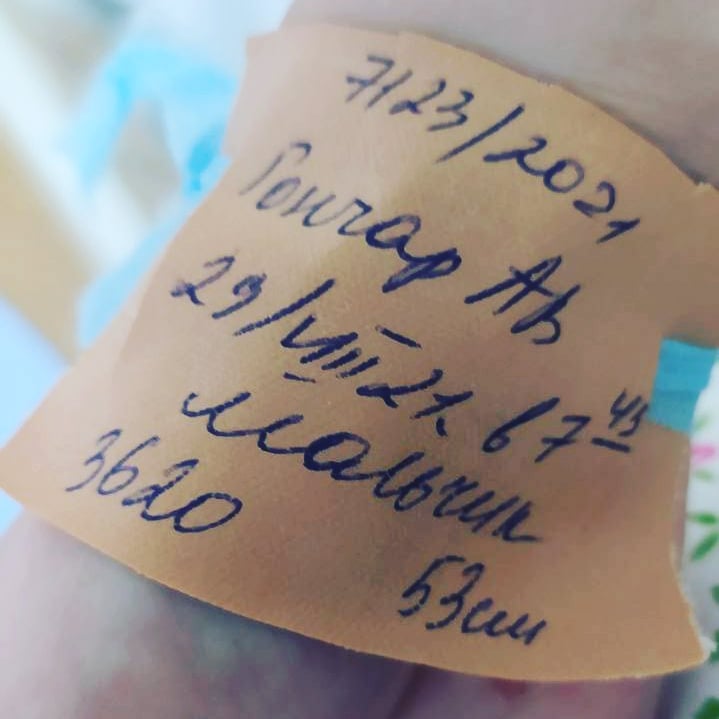 7123/2021
Гончар Ан
29/VIII 21. в 7 45
мальчик
3620
53 см